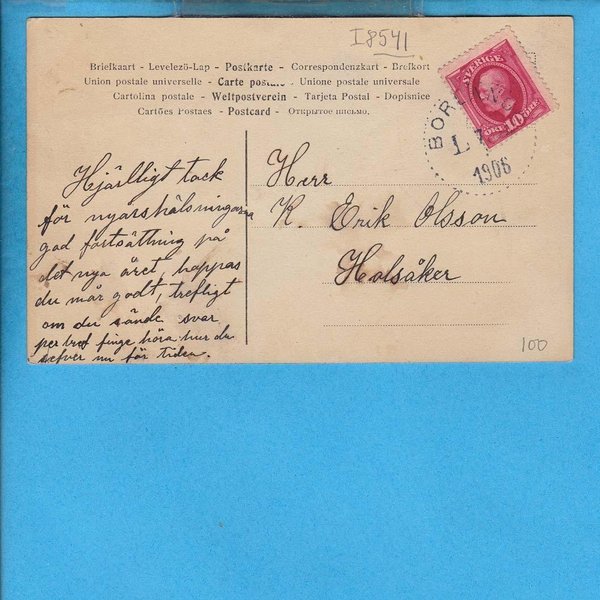 I8541
Briefkaart - Levelező-Lap - Postkarte - Correspondenzkart - Brefkort
Union postale universelle - Carte postale - Unione postale universale
Cartolina postale - Weltpostverein - Tarjeta Postal - Dopisnice
Cartões Postaes - Postcard - Открытое письмо.
SVERIGE
10 ÖRE ÖRE
BOR
L
1906
Hjärlligt tack
för nyarshälsningarna
god fortsättning på
det nya året, hoppas
du mår godt, trefligt
om du sände svar
per bref finge höra hur du
lefver nu för tiden.
Herr
K. Erik Olsson
Holsåker
100